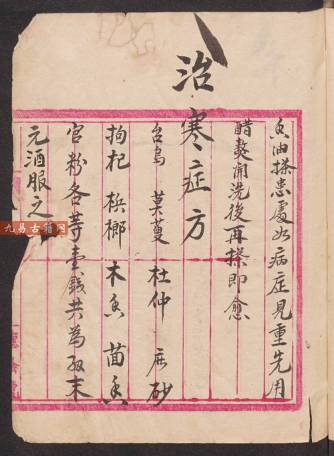 香油搽患處如病症見重先用
醋熬開洗後再搽即愈
治寒症方
台烏 莫蔓 杜仲 辰砂
拘杞 槟榔 木香 茴香
官粉各等壹錢共為細末
元酒服之
九易古籍网